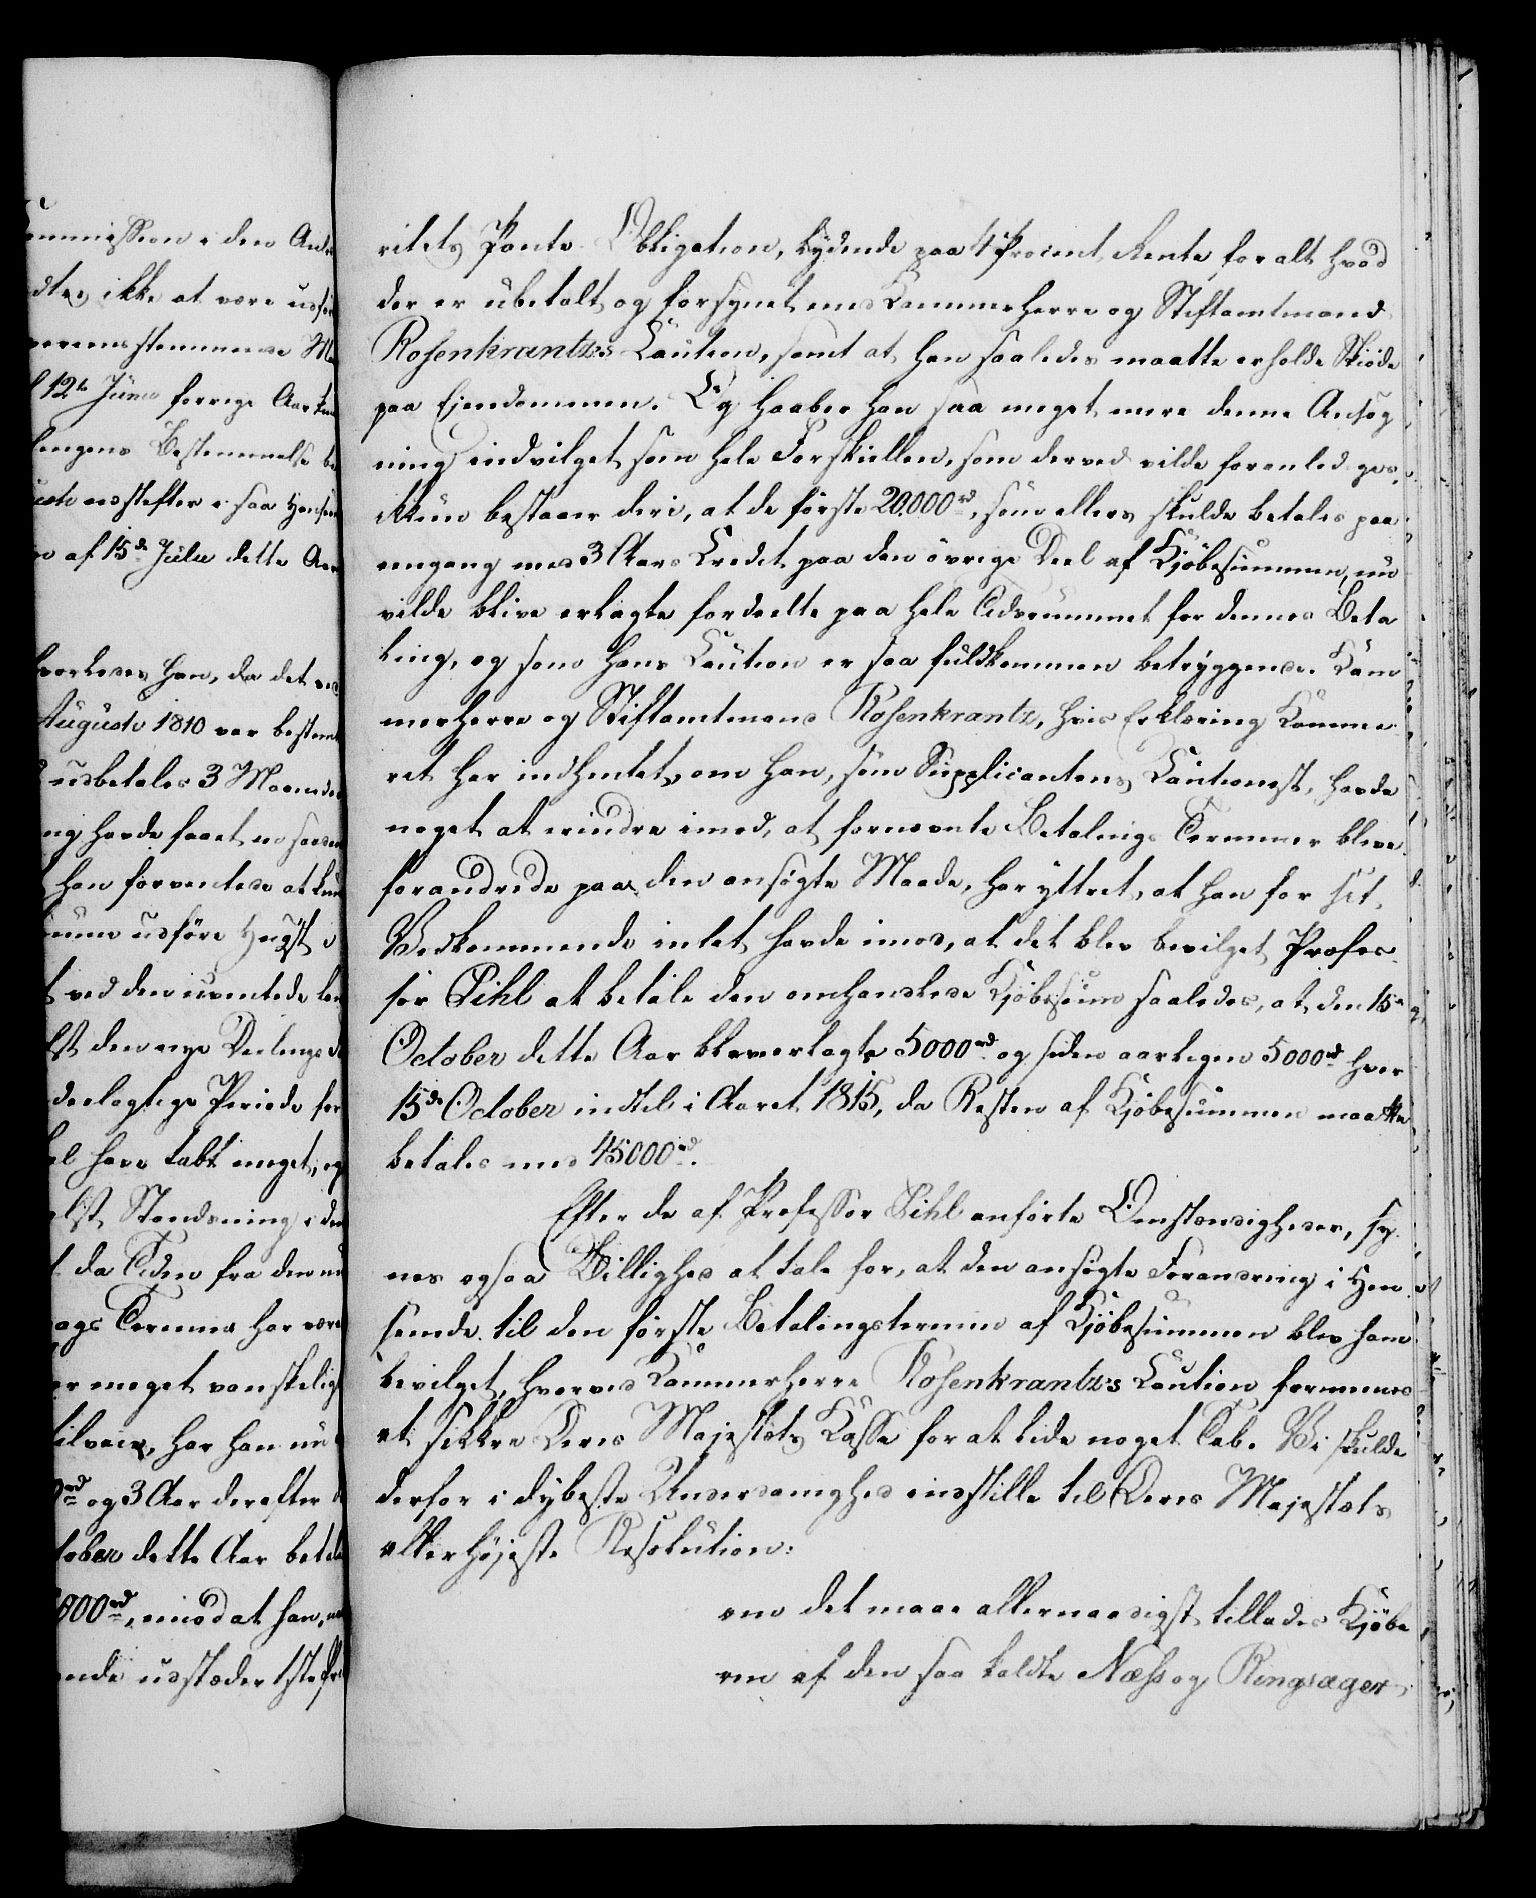 ommission i den And
dtes ikke at være udfør
vereensstemmende Ma
12te Junii forrige Aar
lingens Bestemmelse be
udstæder i saa Hense
af 15de Julii dette Aar
hvorledes han, da det ved
Augusto 1810 var bestemt
udbetales 3 Maaneder
ng havde faaet
han forventede at kun
kunne udføre Hugst i
ved den ventede
den nye Deelings
deelagtige Periode for
have tabt meget, og
Standsning i den
da Tiden fra den nu
ags Termin har være
er meget vanskelig
tilveie, har han nu
rd og 3 Aar derefter
tober dette Aar betale
000rd, imod at han,
ende udstæder 1ste Pri
ritets Pante-Obligation, lydende paa 4 Procent Rente for alt hvad
der er ubetalt og forsynet med Kammerherre og Stiftamtmand
Rosenkrantz's Caution, samt at han saaledes maatte erholde Skiøde
paa Ejendommen. Og haaber han saa meget mere denne Ansøg
ning indvilget som hele Forskiellen, som derved vilde foranlediges,
ikkun bestaaer deri, at de første 20,000rd, som ellers skulde betales paa
eengang med 3 Aars Credit paa den øvrige Deel af Kjøbesummen, nu
vilde blive erlagte fordeelte paa hele Tidsrummet for dennes Beta
ling, og som hans Caution er saa fuldkommen betryggende. Kam
merherre og Stiftamtmand Rosenkrantz, hvis Erklæring Kamme
ret har indhentet, om han, som Supplicantens Cautionist, havde
noget at erindre imod, at fornævnte Betalings Terminer bleve
forandrede paa den ansøgte Maade, har yttret, at han for sit
Vedkommende intet havde imod, at det blev bevilget Profes
sor Pihl at betale den omhandlede Kjøbesum saaledes, at den 15de
October dette Aar bleve erlagte 5000rd og siden aarligen 5000rd hver
15de October indtil i Aaret 1815, da Resten af Kjøbesummen maatte
betales med 45000rd.
Efter de af Professor Pihl anførte Omstændigheder, sy
nes ogsaa Billighed at tale for, at den ansøgte Forandring i Hen
seende til den første Betalingstermin af Kjøbesummen blev ham
bevilget, hvorved Kammerherre Rosenkrantz's Caution formenes
at sikkre Deres Majestæts Kasse for at lide noget Tab. Vi skulde
derfor i dybeste Underdanighed indstille til Deres Majestæts
allerhøjeste Resolution:
om det maae allernaadigst tillades Kjøbe
ren af den saa kaldte Næss og Ringsager